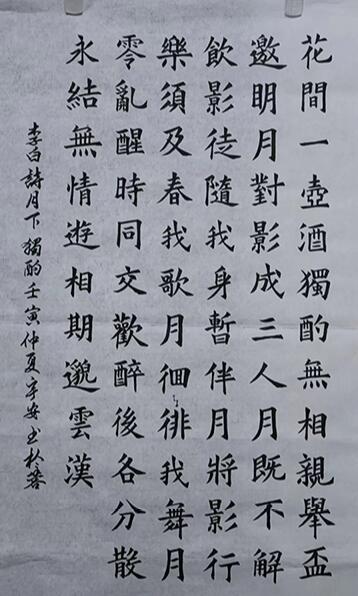 花間一壺酒獨酌無相親舉盃
邀明月對影成三人月既不解
飲影徒隨我身暫伴月將影行
樂須及春我歌月徊徘我舞月
零亂醒時同交歡醉後各分散
永結無情遊相期邈雲漢
李白詩月下獨酌壬寅仲夏宇安书於蓉